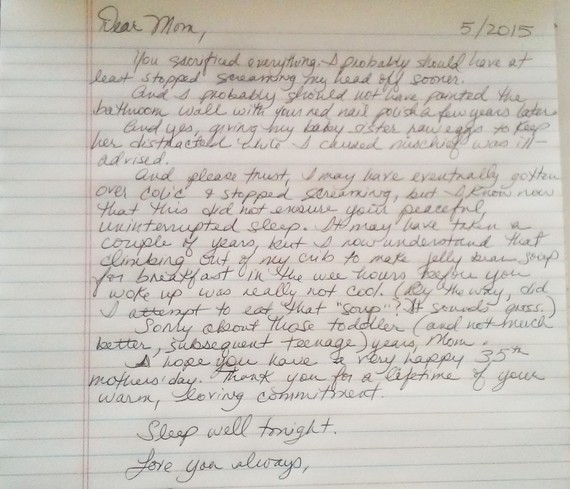 Dear Mom, 5/2015
You sacrificed everything. I probably should have at
least stopped screaming my head off sooner.
And I probably should not have painted the
bathroom wall with your red nail polish a few years later.
And yes, giving my baby sister raw eggs to keep
her distracted while I caused mischief was ill-
advised.
And please trust, I may have eventually gotten
over colic & stopped screaming, but I know now
that this did not ensure your peaceful,
uninterrupted sleep. It may have taken a
couple of years, but I now understand that
climbing out of my crib to make jelly bean soup
for breakfast in the wee hours before you
woke up was really not cool. (By the way, did
I attempt to eat that "soup"? It sounds gross.)
Sorry about those toddler (and not much
better, subsequent teenage) years, Mom.
I hope you have a very happy 35th
mothers' day. Thank you for a lifetime of your
warm, loving commitment.
Sleep well tonight.
Love you always,